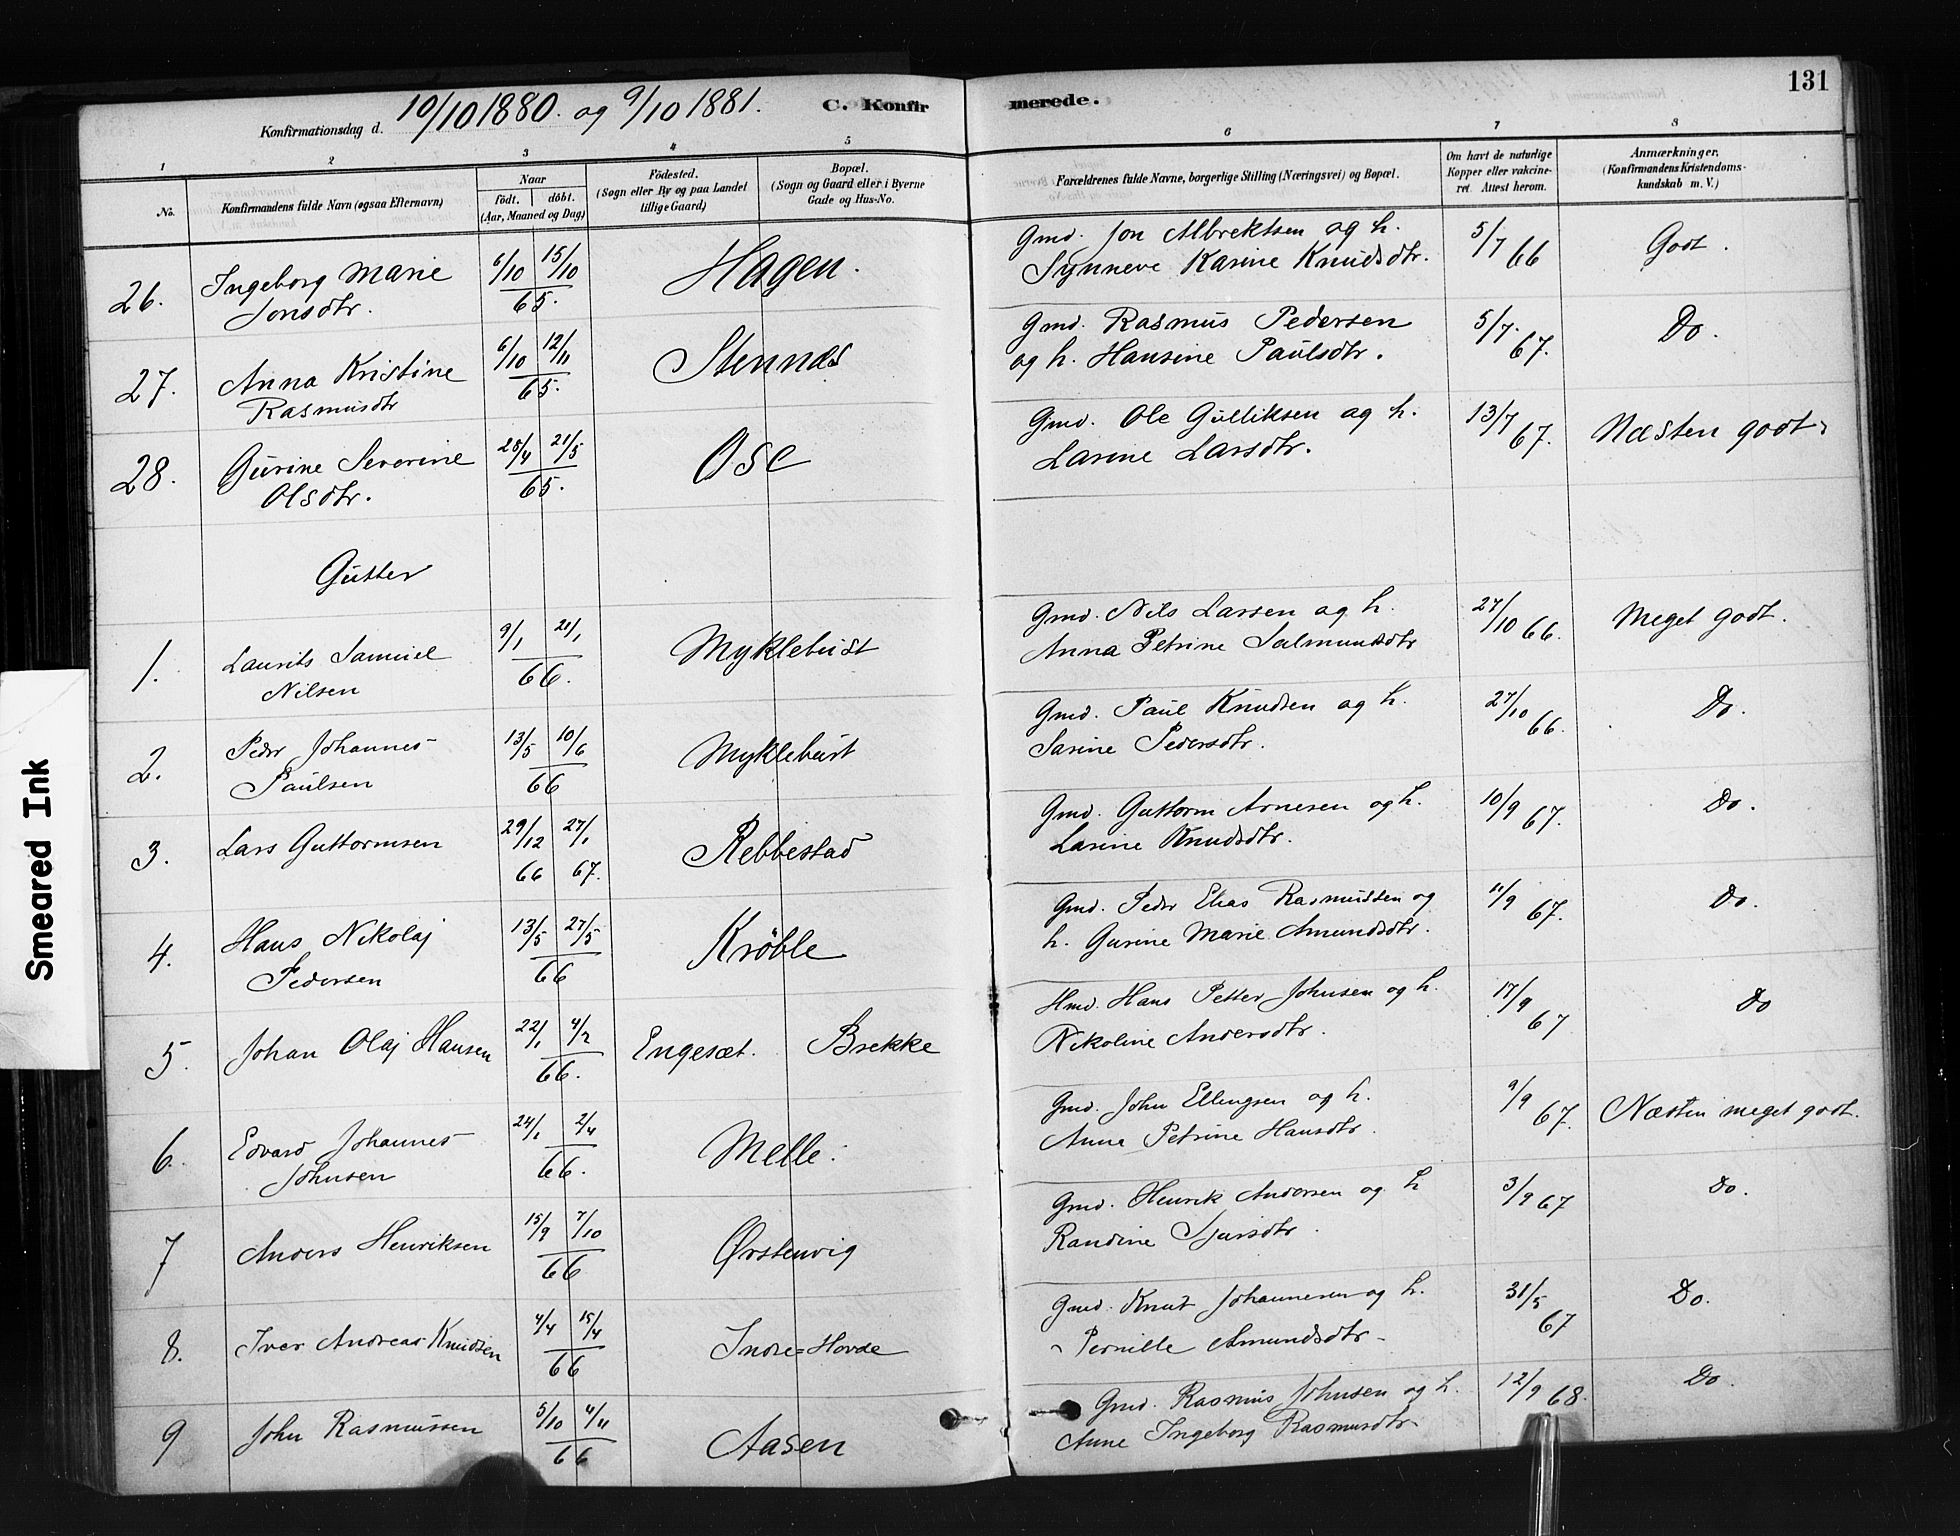 131
Konfirmationsdag d. 10/10 1880. og 9/10 1881. C. Konfirmerede.
1 2 3 4 5 6 7 8
No.
Konfirmandens fulde Navn (ogsaa Efternavn)
Naar
født. døbt.
(Aar, Maaned og Dag)
Fødested.
(Sogn eller By og paa Landet
tillige Gaard)
Bopæl.
(Sogn og Gaard eller i Byerne
Gade og Hus-No.
Forældrenes fulde Navne, borgerlige Stilling (Næringsvei) og Bopæl.
Om havt de naturlige
Kopper eller vakcine-
ret. Attest herom.
Anmærkninger.
(Konfirmandens Kristendoms-
kundskab m. V.)
26. Ingeborg Marie 6/10 15/10 Hagen. Gmd. Jon Albrektsen og h. 5/7 66 Godt.
Jonsdtr. 65. Synneve Karine Knudsdtr.
27. Anna Kristine 6/10 12/11 Stennes Gmd. Rasmus Pedersen 5/7 67. Do.
Rasmusdtr 65. og h. Hansine Paulsdtr.
28. Gurine Severine 25/4 21/5 Ose Gmd. Ole Gulliksen og h. 13/7 67. Næsten godt.
Olsdtr. 65. Larine Larsdtr.
Gutter
1. Laurits Samuel 9/1 21/1 Myklebust Gmd. Nils Larsen og h. 27/10 66. Meget godt.
Nilsen 66. Anna Petrine Salmundsdtr
2. Peder Johannes 13/5 10/6 Myklebust Gmd. Paul Knudsen og h. 27/10 66. Do.
Paulsen 66 Sarine Pedersdtr.
3. Lars Guttormsen 29/12 27/1 Rebbestad Gmd. Guttorm Arnesen og h. 10/9 67. Do.
66 67. Larine Knudsdtr.
4. Hans Nikolaj 13/5 27/5 Krøble Gmd. Peder Elias Rasmussen og 11/9 67. Do.
Pedersen 66 h. Gurine Marie Amundsdtr.
5. Johan Olaj Hansen 22/1 4/2 Engesæt. Brekke Hmd. Hans Petter Johnsen og h. 17/9 67 Do
66. Nikoline Andersdtr.
6. Edvard Johannes 24/1 2/4 Melle. Gmd. John Ellingsen og h. 9/9 67. Næsten meget godt.
Johnsen 66. Anne Petrine Hansdtr.
7 Anders Henriksen 15/9 7/10 Ørstenvig Gmd. Henrik Andersen og h 3/9 67 Do.
66 Randine Sjursdtr.
8. Iver Andreas Knudsen 4/4 15/4 Indre=Hovde Gmd. Knut Johannesen og h. 31/5 67 Do.
66 Pernille Amundsdtr.
9 John Rasmussen 5/10 4/11 Aasen Gmd. Rasmus Johnsen og h. 12/9 68. Do.
66 Anne Ingeborg Rasmusdtr.
Smeared Ink